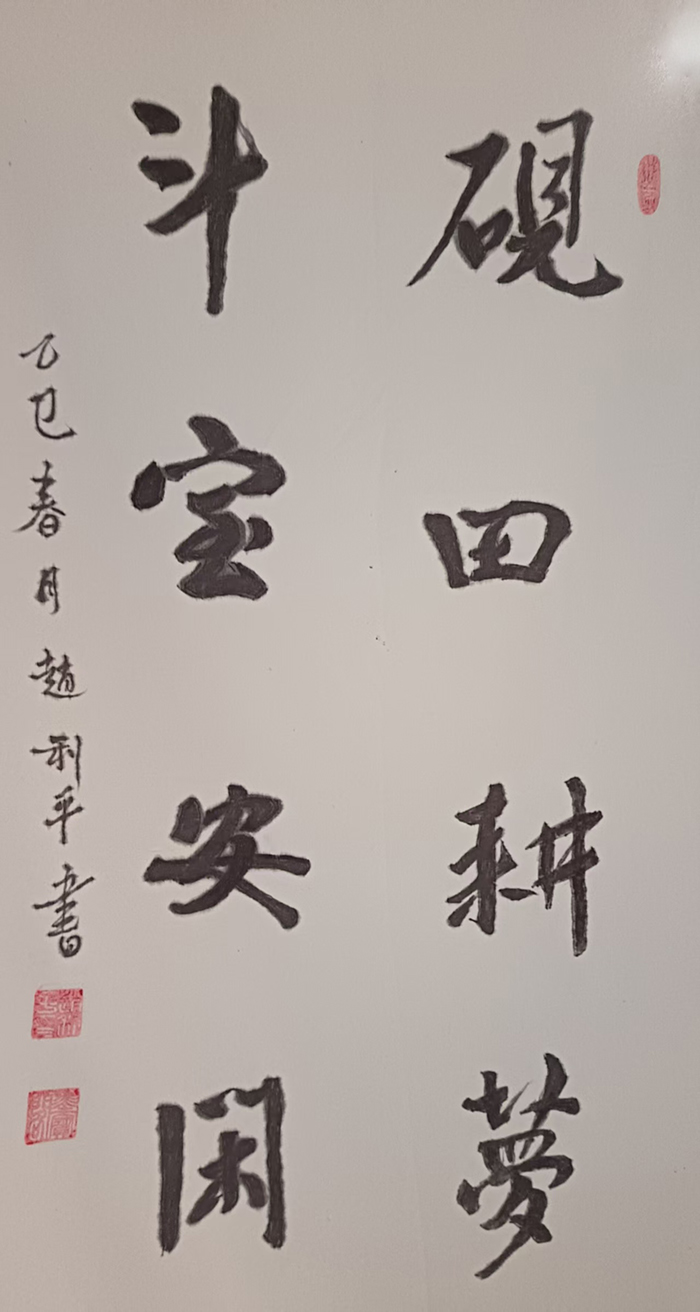 硯田耕夢
斗室安閑
乙巳春月趙利平書